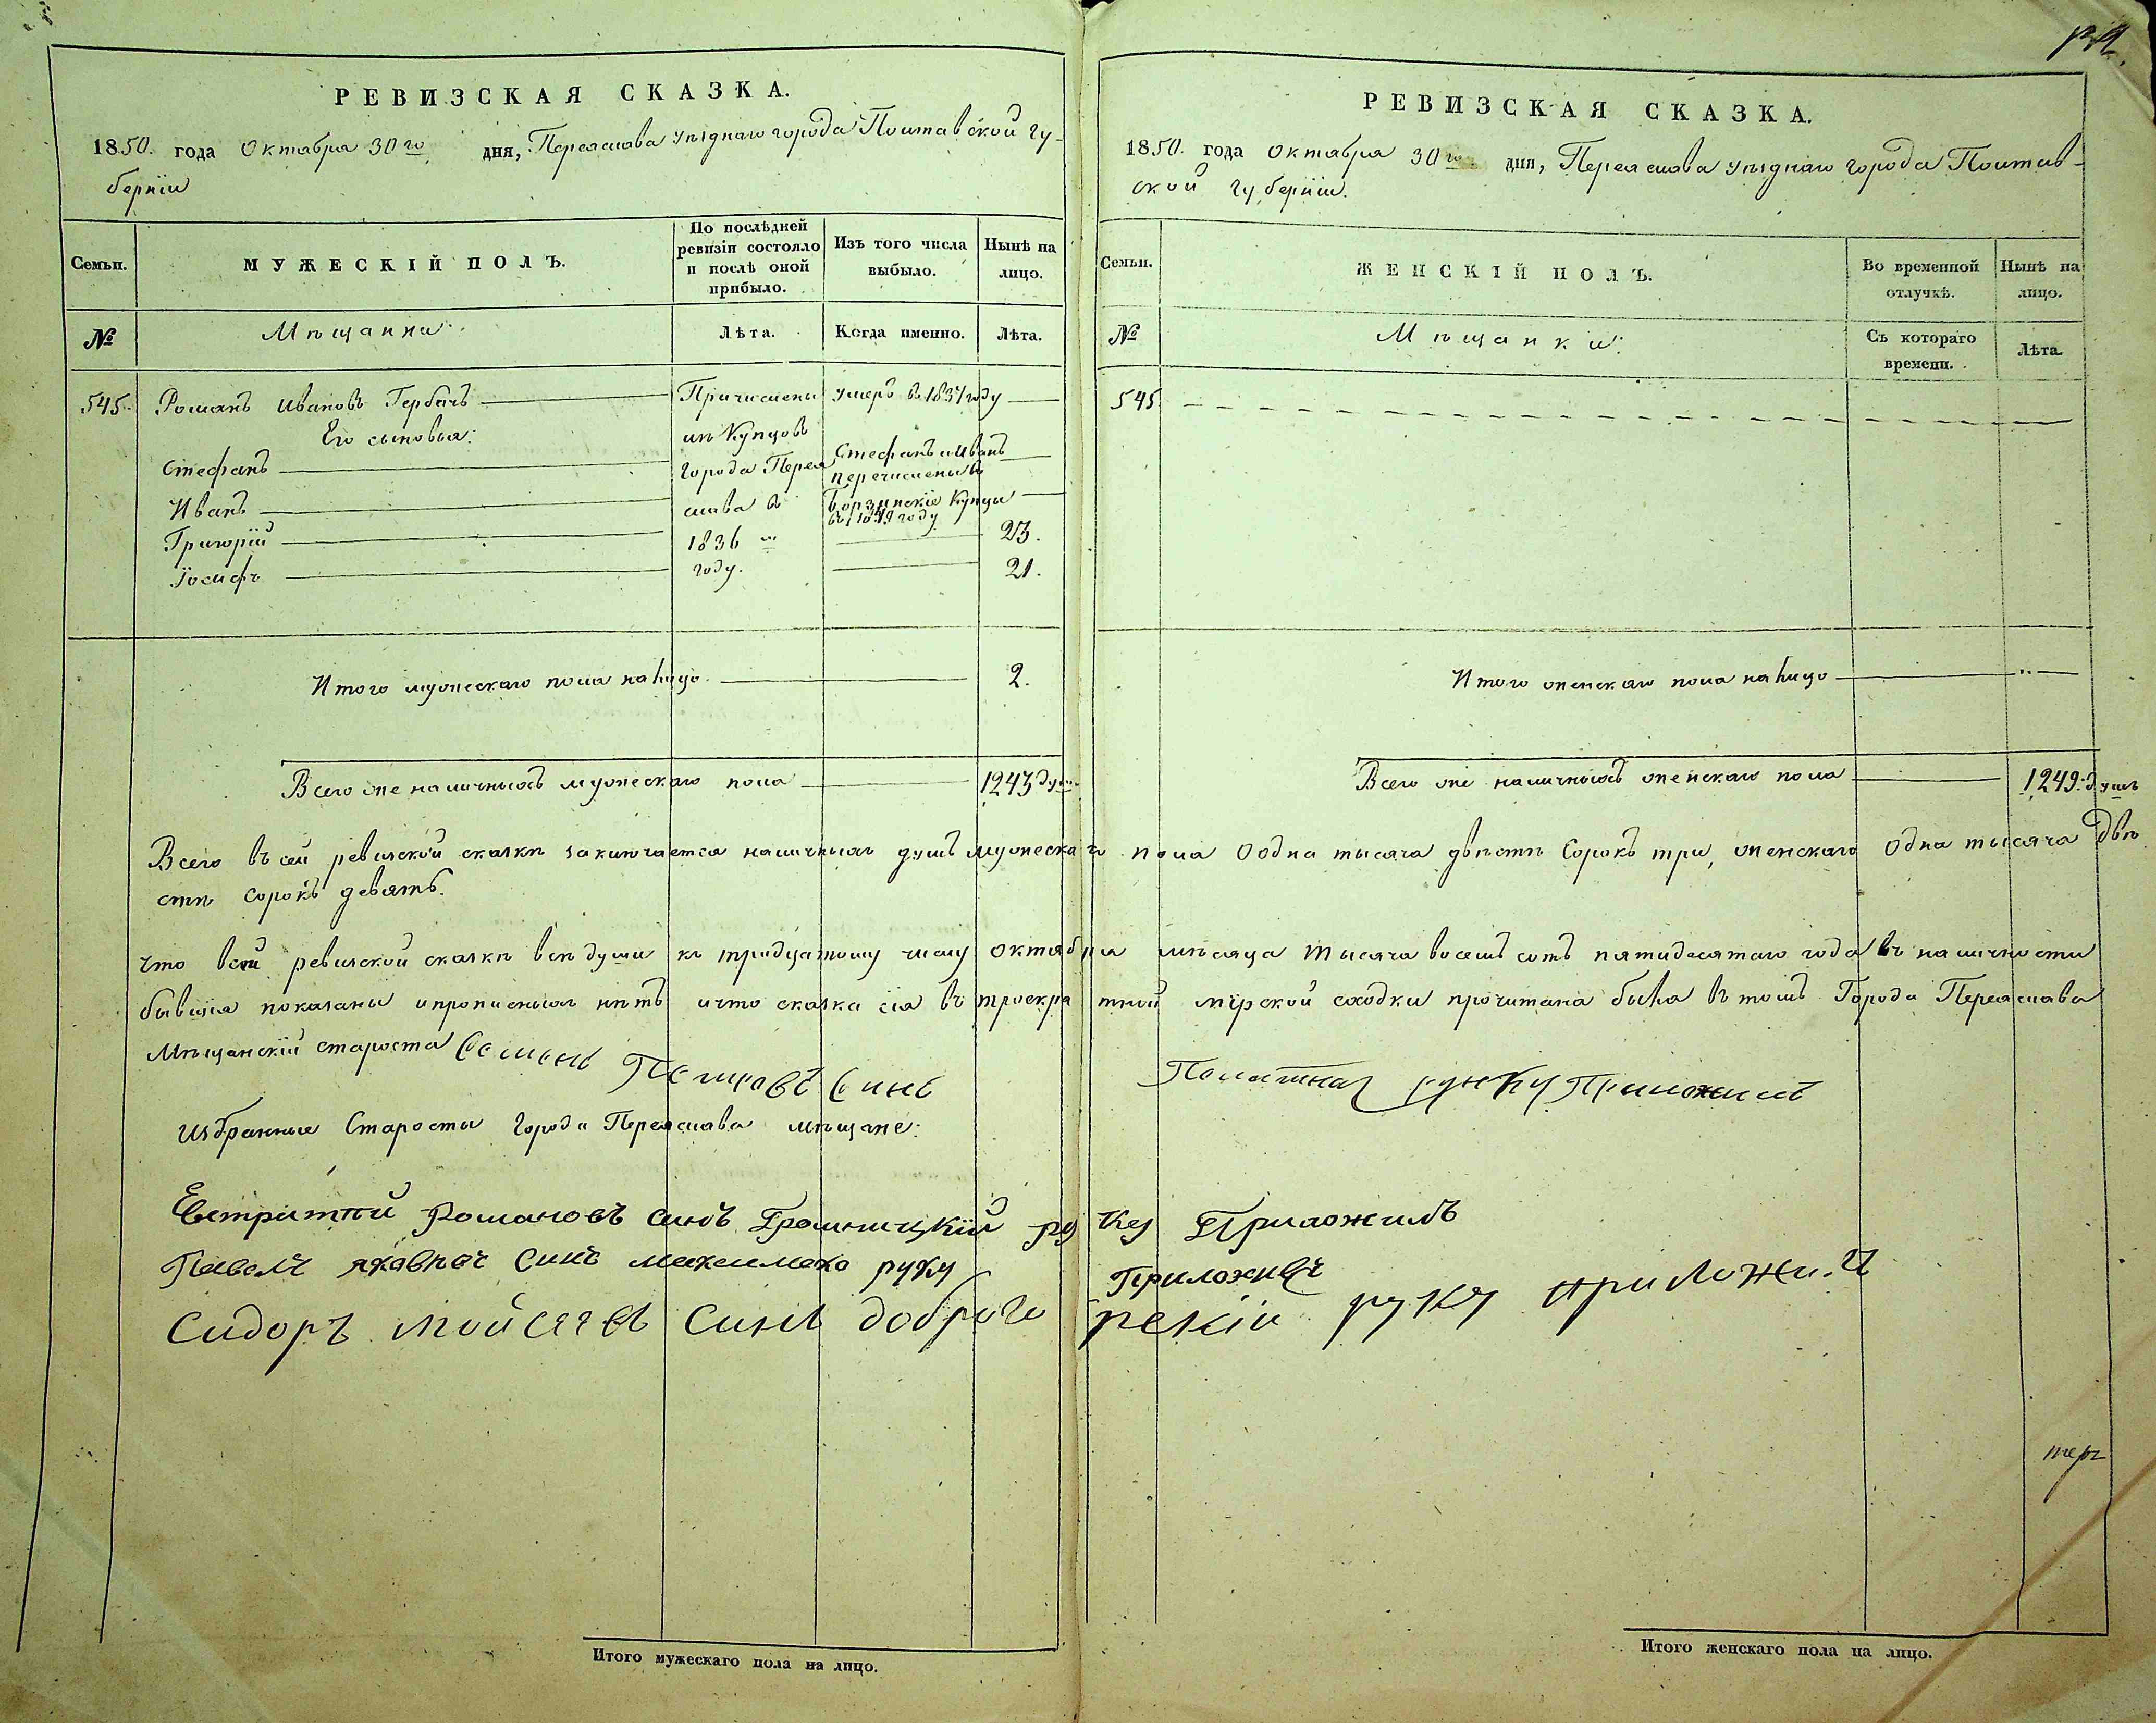 РЕВИЗСКАЯ СКАЗКА.
1850. года Октября 30го дня, Переяслава уѣзднаго города Полтавской гу-
берніи
Семьи.
МУЖЕСКІЙ ПОЛЪ.
По послѣдней ревизіи состояло и послѣ оной прибыло.
Изъ того числа выбыло.
Нынѣ на лицо.
№
Мѣщани:
Лѣта.
Когда именно.
Лѣта.
545. Романъ Ивановъ Гербачъ Причислены умеръ в 1837 году
Его сыновья: изъ Купцовъ
Стефанъ города Перея Стефанъ и Иванъ
перечислены в
Иванъ слава в Борзинскіе Купцы
въ 1849 году
Григорій 1836 м 23.
Іосифъ году. 21.
Итого мужескаго пола на лицо 2.
Всего же наличныхъ мужескаго пола 1243 душ
РЕВИЗСКАЯ СКАЗКА.
1850. года Октября 30го дня, Переяслава уѣзднаго города Полтав-
ской губерніи.
Семьи.
ЖЕНСКІЙ ПОЛЪ.
Во временной отлучкѣ.
Нынѣ на лицо.
№
Мѣщанки:
Съ котораго времени.
Лѣта.
545
Итого женскаго пола на лицо
Всего же наличныхъ женскаго пола 1249. душъ
Всего въ сей ревизской сказкѣ заключается наличныхъ душъ мужескаго пола Одна тысяча двѣсти Сорокъ три, женскаго Одна тысяча Двѣ
сти Сорокъ девять.
что въ сей ревизской сказкѣ всѣ души къ тридцатому числу Октября мѣсяца тысяча восемь сотъ пятидесятаго года въ наличности
бывшія показаны и прописныхъ нѣтъ и что сказка сія въ троекратной мірской сходки прочитана была в томъ Города Переяслава
Мѣщанскій староста Семенъ синъ руку Приложилъ
Избранные Старосты города Переяслава мѣщане:
Романовъ синъ руку Приложилъ
Павелъ яковлевъ Синъ максимако руку Приложивъ
Сидоръ мойсеевъ Синъ доброгорскій руку приложилъ
Итого мужескаго пола на лицо.
Итого женскаго пола на лицо.